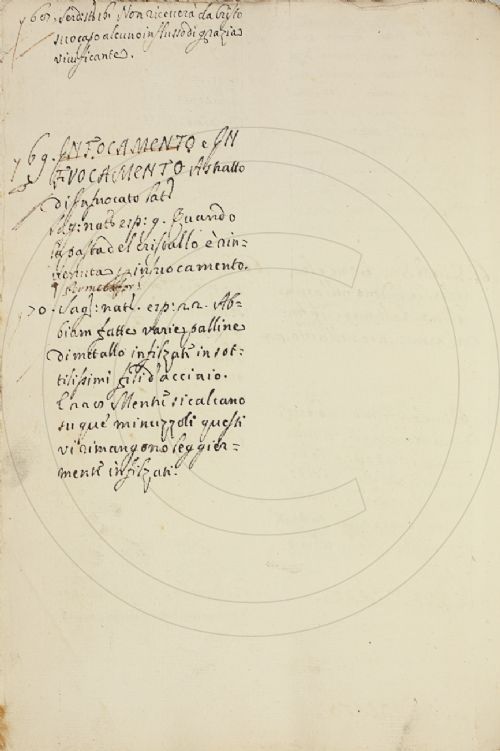 68. Non riceverà da Cristo
suo capo alcuno influsso di grazia
vivificante.
69. INFOCAMENTO e IN
FUOCAMENTO Astratto
di Infuocato
Sag: nat: esp: 9. Quando
la pasta del cristallo è rin:
venuta infuocamento.
70. Sag: nat: esp: 22. Ab=
biam fatte varie palline
di metallo infilzati in sot=
tilissimi fili d'acciaio.
E Mentr si calcano
su que' minuzzoli questi
vi rimangono leggier=
ment infilzati.